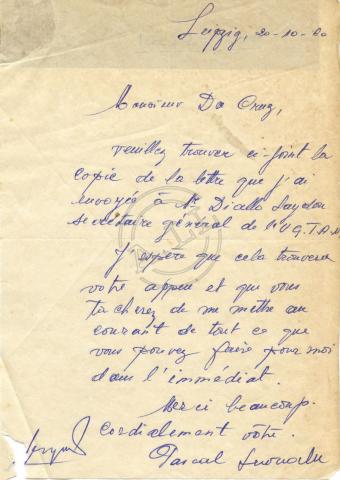 Leipzig, 20-10-60
Monsieur Da Cruz,
veuillez trouver ci-joint la
copie de la lettre que j'ai
envoyée à Mr Diallo Seydou
secrétaire général de l'U.G.T.A.N
J'espère que cela trouvera
votre appui et que vous
tacherez de me mettre au
courant de tout ce que
vous pouvez faire pour moi
dans l'immédiat.
Merci beaucoup.
Cordialement vôtre.
Pascal